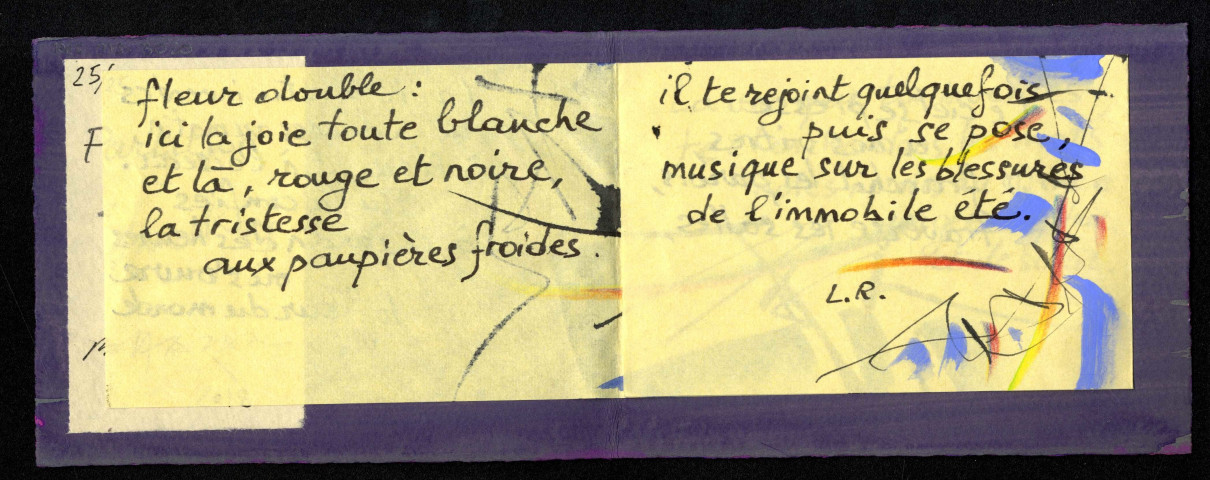 25,
fleur double :
ici la joie toute blanche
et là, rouge et noire,
la tristesse
aux paupières froides.
il te rejoint quelquefois
puis se pose,
musique sur les blessures
de l'immobile été.
L.R.